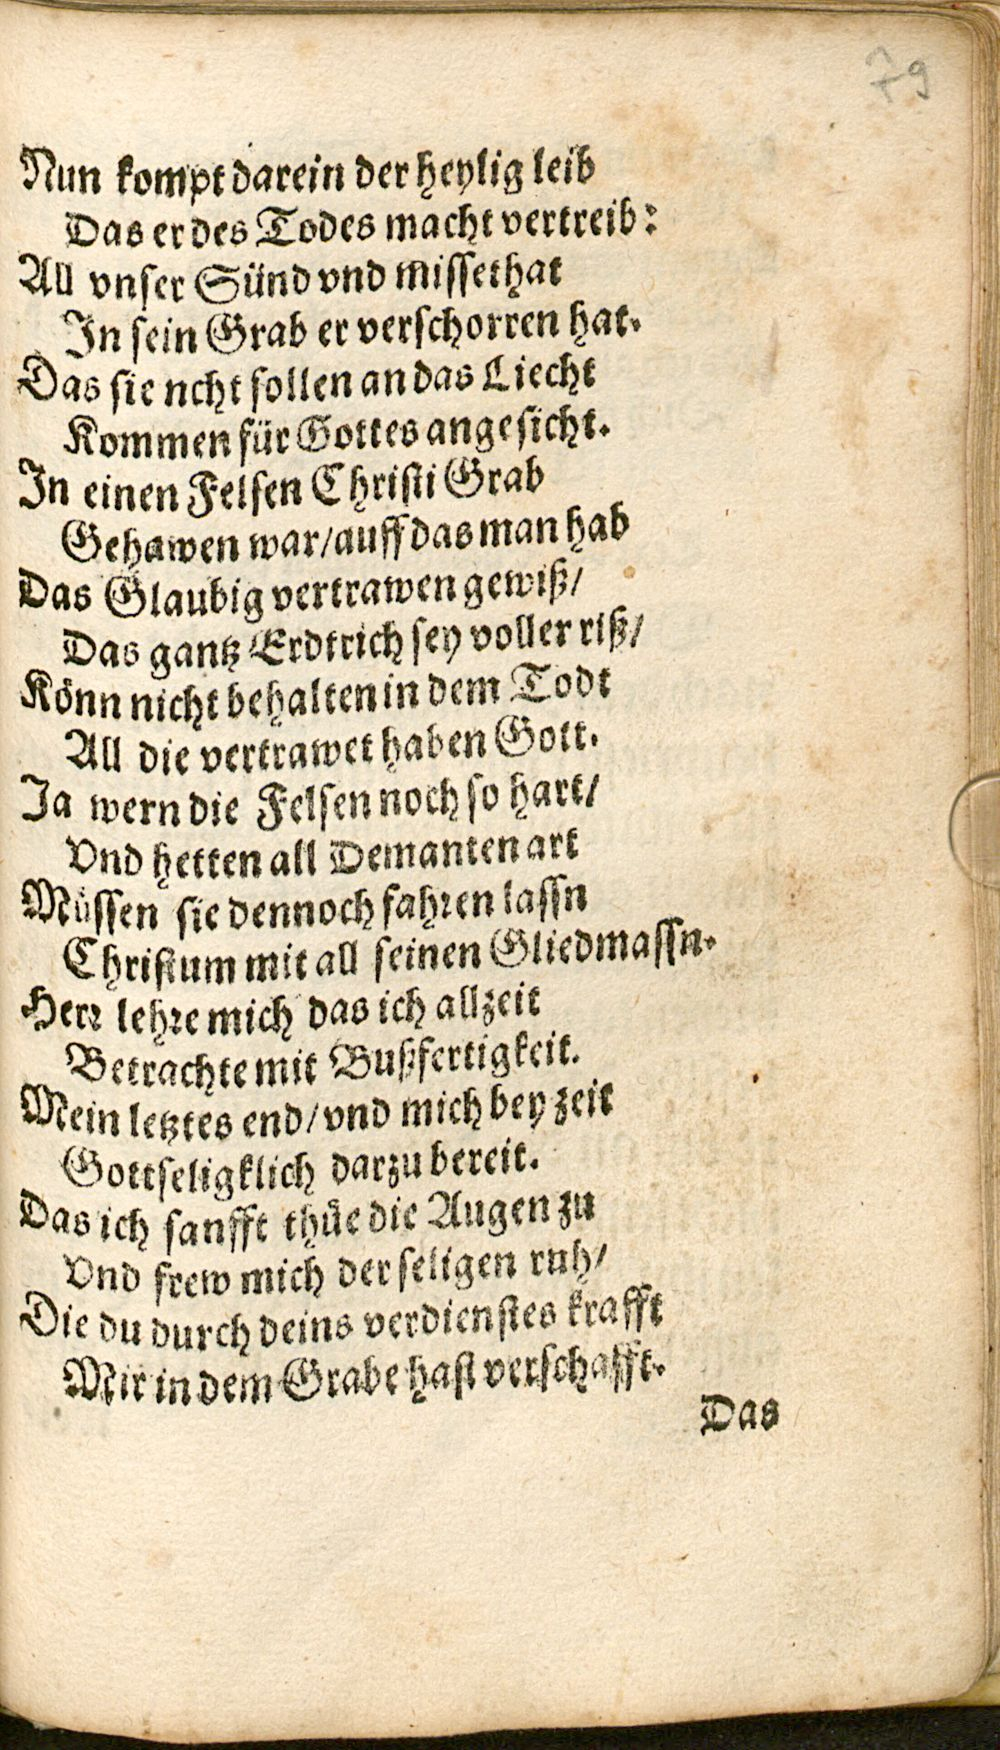 79
Nun kompt darein der heylig leib
Das er des Todes macht vertreib:
All vnser Sünd vnd missethat
In sein Grab er verschorren hat.
Das sie ncht sollen an das Liecht
Kommen für Gottes angesicht.
In einen Felsen Christi Grab
Gehawen war/auff das man hab
Das Glaubig vertrawen gewiß/
Das gantz Erdtrich sey voller riß/
Könn nicht behalten in dem Todt
All die vertrawet haben Gott.
Ja wern die Felsen noch so hart/
Vnd hetten all Demanten art
Müssen sie dennoch fahren lassn
Christum mit all seinen Gliedmassn.
Herr lehre mich das ich allzeit
Betrachte mit Bußfertigkeit.
Mein letztes end/vnd mich bey zeit
Gottseligklich darzu bereit.
Das ich sanfft thüe die Augen zu
Vnd frew mich der seligen ruh/
Die du durch deins verdienstes krafft
Mir in dem Grabe hast verschafft.
Das